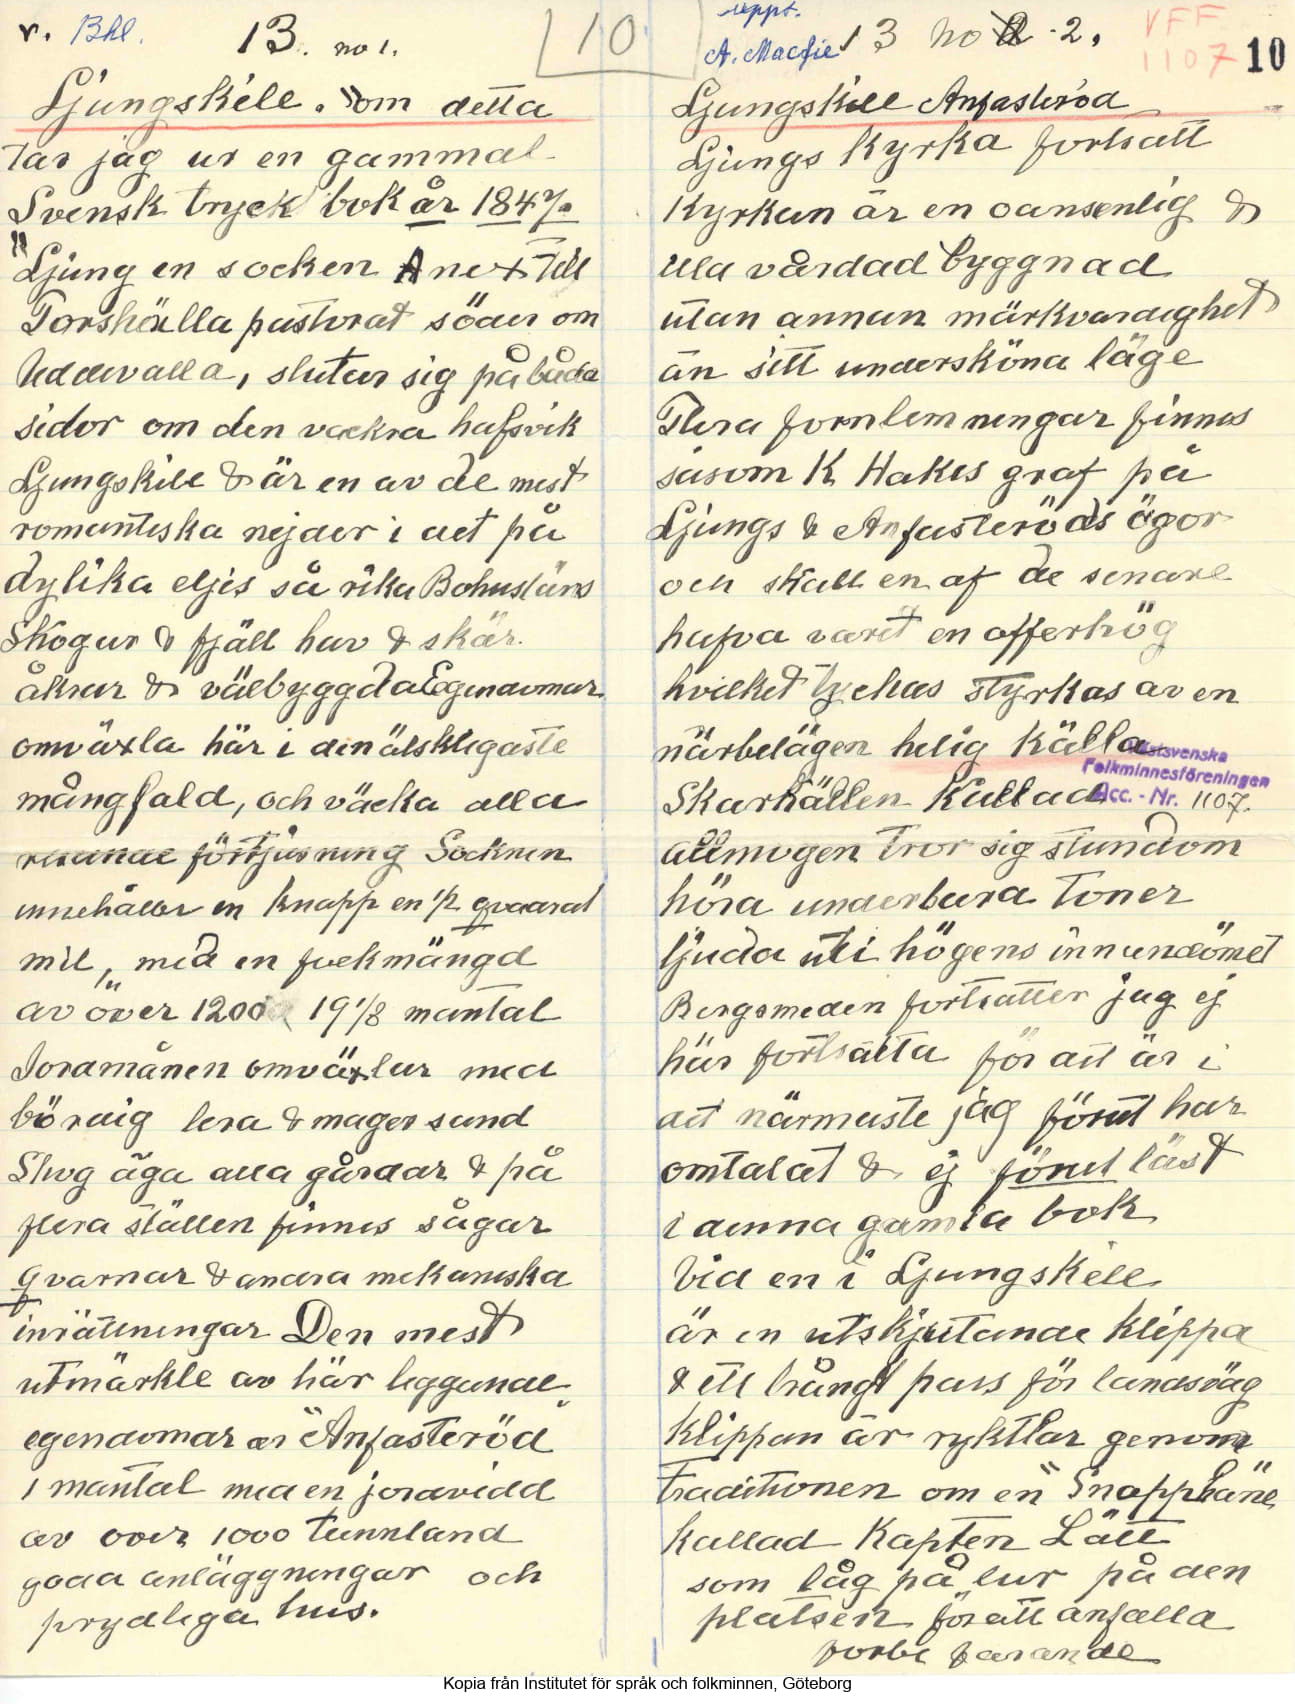 v. Bhl.
13. no 1.
10
Ljungskile. som detta
tar jag ur en gammal
Svensk tryck bok år 1847.
"Ljung en socken Anex till
Torshälla pastorat söder om
Uddevalla, sluter sig på båda
sidor om den vackra hafsvik
Ljungskile & är en av de mest
romantiska nejder i det på
dylika eljes så rika Bohusläns
Skogar & fjäll hav & skär.
åkrar & välbyggda Egendomar
omväxla här i den älskligaste
mångfald, och väcka alla
resande förtjusning Socknen
innehåller en knapp en 1/2 qvadrat
mil, med en folkmängd
av över 1200 19 1/8 mantal
Jordmånen omväxlar med
bördig lera & mager sand
Skog äga alla gårdar & på
flera ställen finnes sågar
qvarnar & andra mekaniska
inrättningar Den mest
utmärkte av här liggande
egendomar är "Anfasteröd"
1 mantal med en jordvidd
av över 1000 tunnland
goda anläggningar och
prydliga hus.
uppt.
A. Macfie
13 no 2.
VFF
1107
10
Ljungskile Anfasteröd
Ljungs Kyrka fortsatt
Kyrkan är en oansenlig &
illa vårdad byggnad
utan annan märkvärdighet
än sitt undersköna läge
Flera fornlemningar finnes
såsom K Hakes graf på
Ljungs & Anfasteröds ägor
och skall en af de senare
hafva varit en offerhög
hvilket tyckas styrkas av en
närbelägen helig Källa
Västsvenska
Folkminnesföreningen
Acc. - Nr. 1107.
Skarkällen Kallad
allmogen tror sig stundom
höra underbara toner
ljuda uti högens innandömet
Bergsmeden fortsätter jag ej
här fortsätta för att är i
det närmaste jag förut har
omtalat & ej förut läst
i denna gamla bok
Vid en i Ljungskile
är en utskjutande klippa
& ett trångt pass för landsväg
Klippan är ryktbar genom
traditionen om en "Snapphäne
kallad Kapten Lätt
som låg på lur på den
platsen för att anfalla
förbi farande
Kopia från Institutet för språk och folkminnen, Göteborg